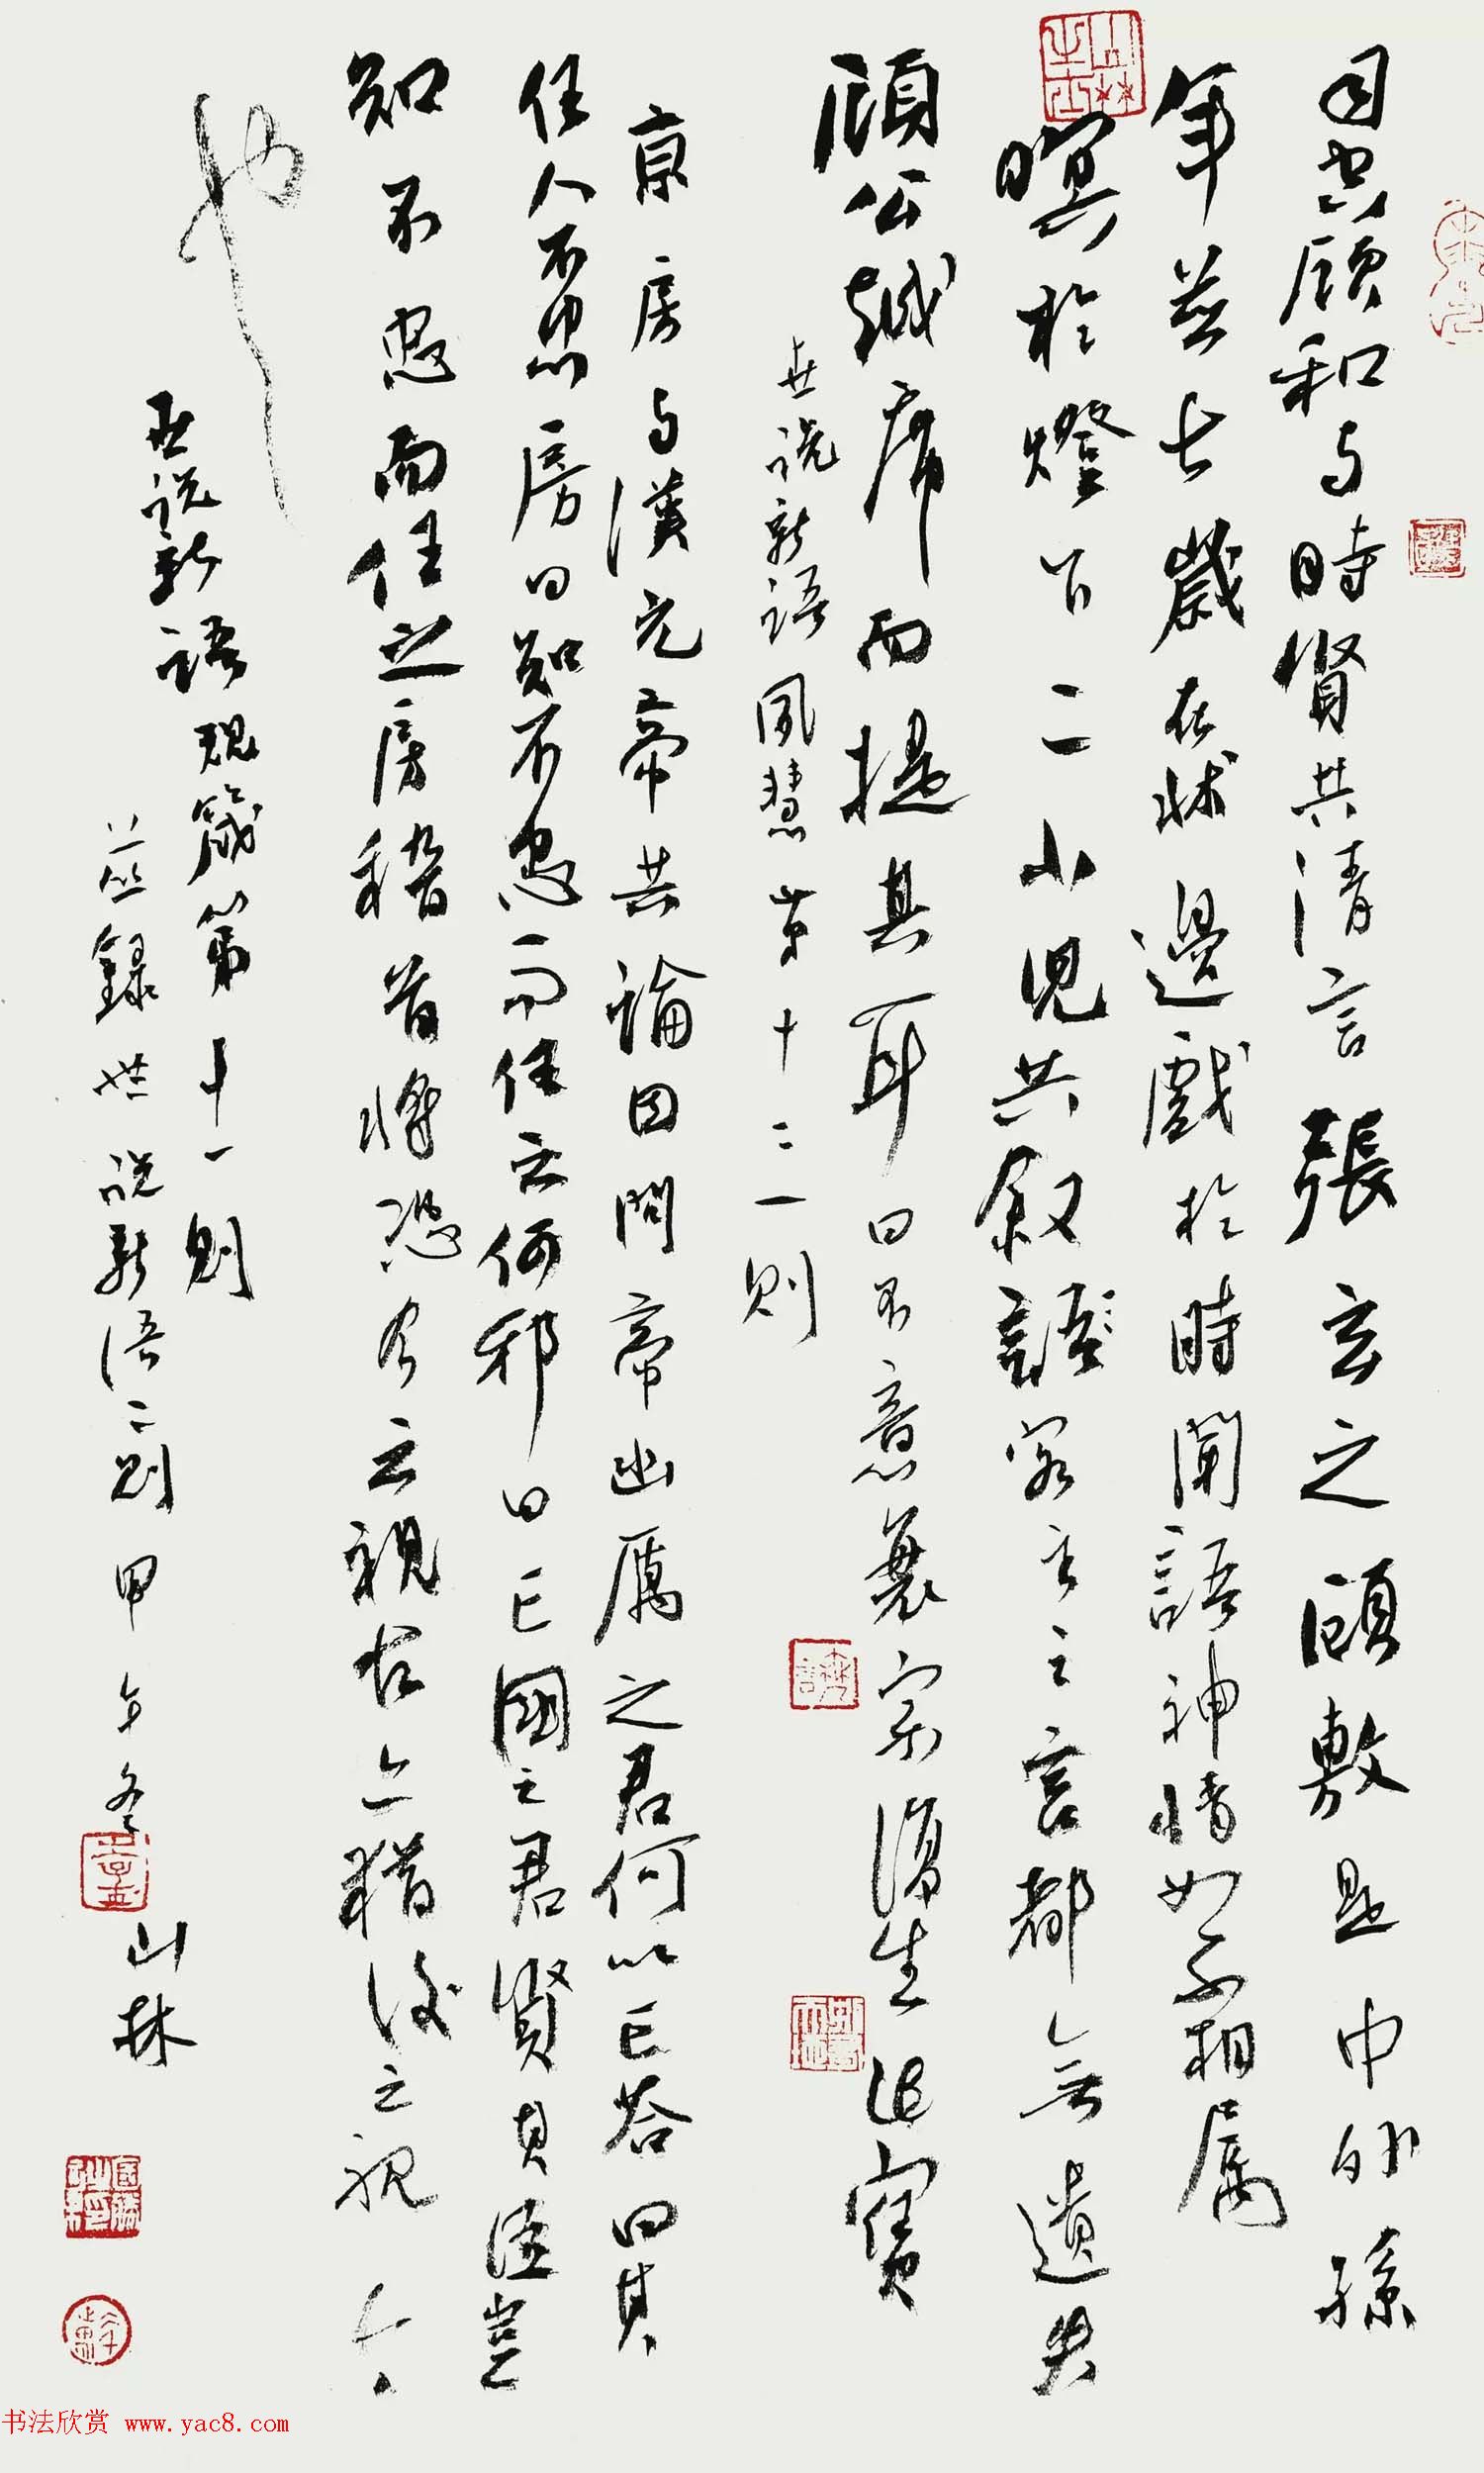 司空顧和与時賢共清言張玄之顧敷是中外孫
年並七歲在牀邊戲於時聞語神情如不相屬
暝於燈下二小兒共叙語客主之言都無遺失
顧公越席而提其耳曰不意衰宗復生此寶
世说新语夙慧第十二一则
京房与漢元帝共論因問帝幽厲之君何以亡答曰其
任人不忠房曰知不忠而任之何邪曰亡國之君賢其臣豈
知不忠而任之房稽首曰將恐今之視古亦猶後之视今
也
世说新語規箴第十一則
並録世说新语二则甲午冬
山林
书法欣赏 www.yac8.com